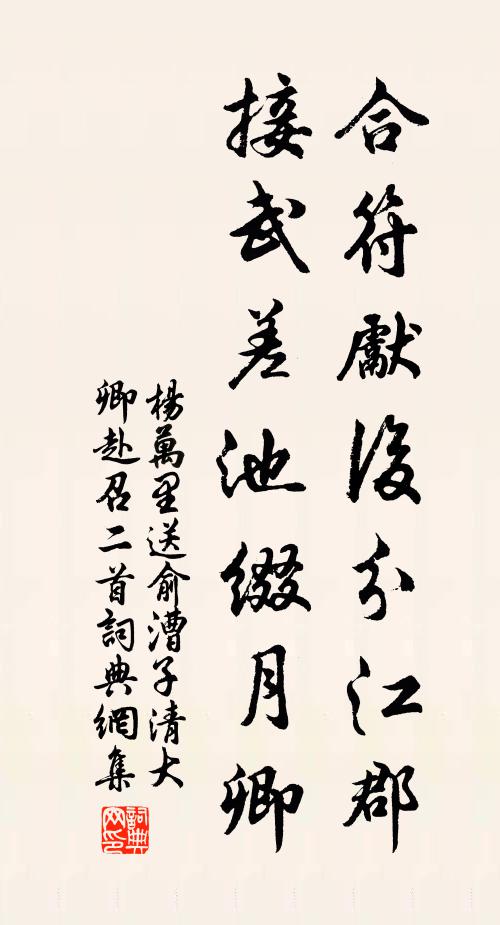 合符獻後分江郡
接武差池綴月卿
楊萬里送俞漕子清大
卿赴召二首詞典網集
詞典網印